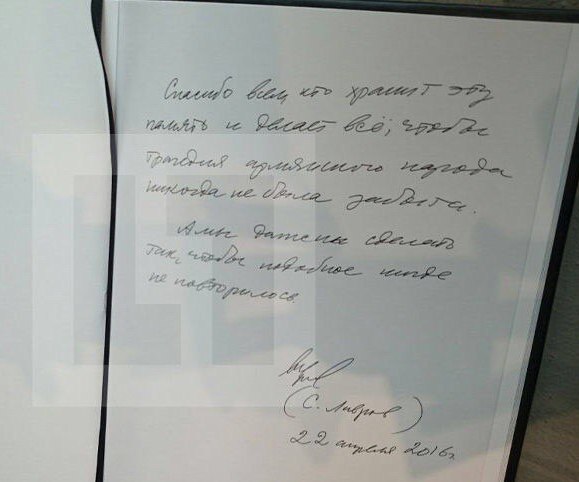 Спасибо всем, кто хранит эту
память и делает всё, чтобы
трагедия армянского народа
никогда не была забыта.
А мы должны сделать
так, чтобы подобное нигде
не повторилось
(С. Лавров)
22 апреля 2016г.